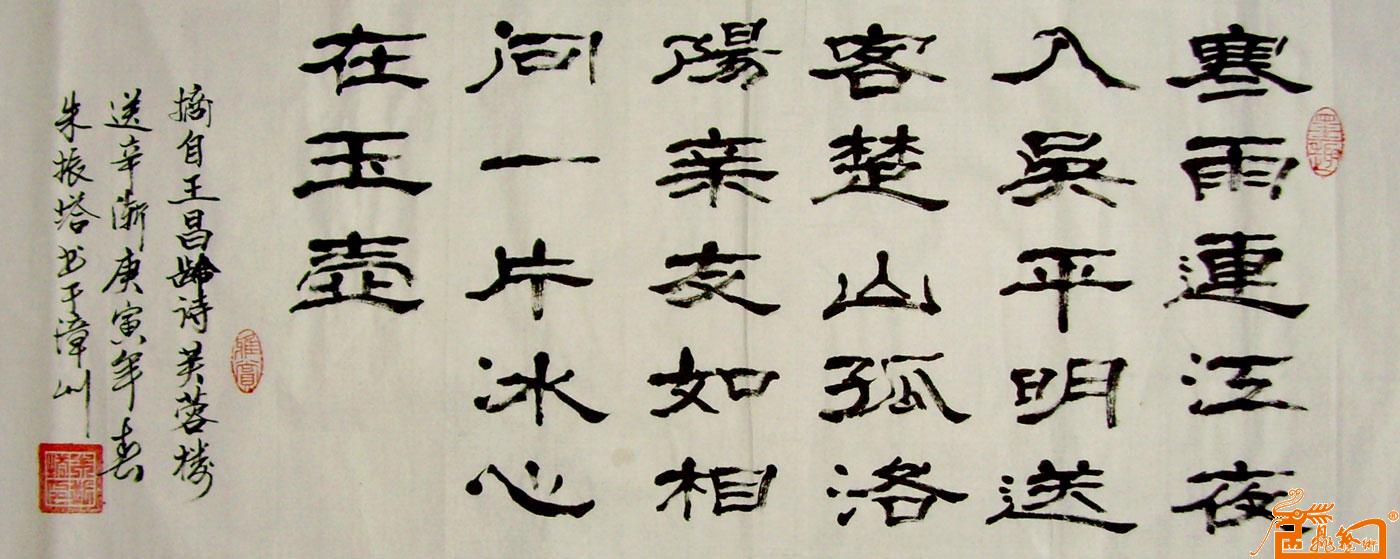 寒雨連江夜
入吳平明送
客楚山孤洛
陽亲友如相
问一片冰心
在玉壺
摘自王昌龄诗芙蓉楼
送辛渐庚寅年春
朱振塔书于漳州